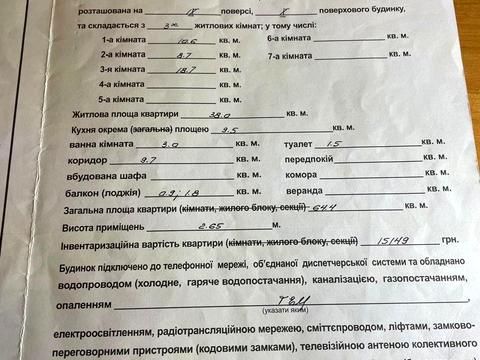 розташована на IX поверсі, X поверхового будинку,
та складається з 3х житлових кімнат; у тому числі:
1-а кімната 10.6 кв. м. 6-а кімната кв. м.
2-а кімната 8.7 кв. м. 7-а кімната кв. м.
3-я кімната 18.7 кв. м.
4-а кімната кв. м.
5-а кімната кв. м.
Житлова площа квартири 38.0 кв. м.
Кухня окрема (загальна) площею 9.5 кв. м.
ванна кімната 3.0 кв. м. туалет 1.5 кв. м.
коридор 9.7 кв. м. передпокій кв. м.
вбудована шафа кв. м. комора кв. м.
балкон (лоджія) 0.9; 1.8 кв. м. веранда кв. м.
Загальна площа квартири (кімнати, жилого блоку, секції) 64.4 кв. м.
Висота приміщень 2.65 м.
Інвентаризаційна вартість квартири (кімнати, жилого блоку, секції) 15149 грн.
Будинок підключено до телефонної мережі, об'єднаної диспетчерської системи та обладнано
водопроводом (холодне, гаряче водопостачання), каналізацією, газопостачанням,
опаленням ТЕЦ
(указати яким)
електроосвітленням, радіотрансляційною мережею, сміттєпроводом, ліфтами, замково-
переговорними пристроями (кодовими замками), телевізійною антеною колективного